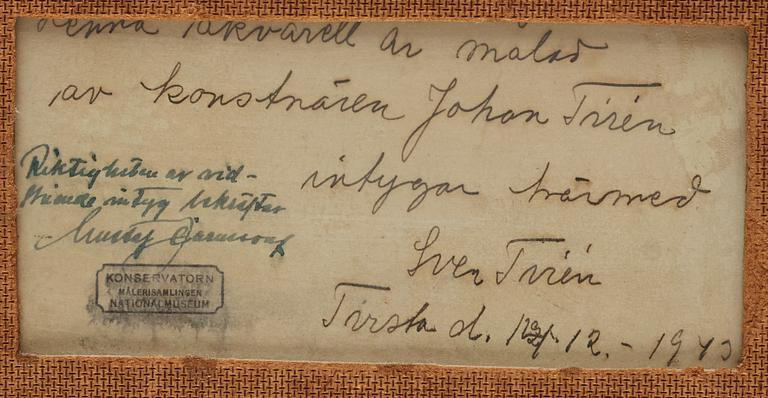 Denna akvarell är målad
av konstnären Johan Tirén
intygar härmed
Sven Tirén
Tirsta d. 12.- 1943
Riktigheten av vid-
stående intyg bekräftar
Gustaf
KONSERVATORN
MÅLERISAMLINGEN
NATIONALMUSEUM